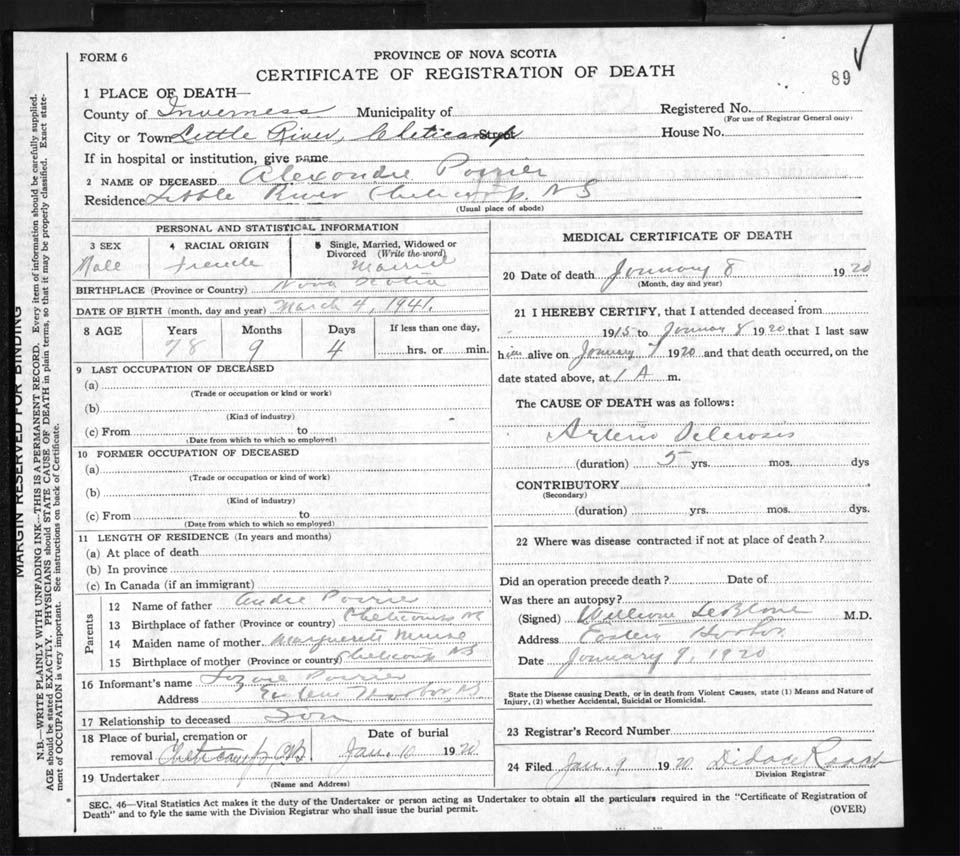 FORM 6
PROVINCE OF NOVA SCOTIA
CERTIFICATE OF REGISTRATION OF DEATH
89
1 PLACE OF DEATH—
County of Inverness Municipality of
Registered No.
(For use of Registrar General only)
City or Town Little River, Cheticamp Street
House No.
If in hospital or institution, give name
2 NAME OF DECEASED Alexandre Poirier
Residence Little River Cheticamp. N S
(Usual place of abode)
PERSONAL AND STATISTICAL INFORMATION
3 SEX
Male
4 RACIAL ORIGIN
French
5 Single, Married, Widowed or
Divorced (Write the word)
Married
BIRTHPLACE (Province or Country) Nova Scotia
DATE OF BIRTH (month, day and year) March 4, 1941.
8 AGE
Years
Months
Days
If less than one day,
78
9
4
hrs. or min.
9 LAST OCCUPATION OF DECEASED
(a)
(Trade or occupation or kind or work)
(b)
(Kind of industry)
(c) From to
(Date from which to which so employed)
10 FORMER OCCUPATION OF DECEASED
(a)
(Trade or occupation or kind of work)
(b)
(Kind of industry)
(c) From to
(Date from which to which so employed)
11 LENGTH OF RESIDENCE (In years and months)
(a) At place of death
(b) In province
(c) In Canada (if an immigrant)
Parents
12 Name of father Andre Poirier
13 Birthplace of father (Province or country) Cheticamp NS
14 Maiden name of mother Marguerett
15 Birthplace of mother (Province or country) Cheticamp NS
16 Informant's name Poirier
Address Eastern Harbor NS
17 Relationship to deceased Son
18 Place of burial, cremation or
Date of burial
removal Cheticamp Jan. 10 1920.
19 Undertaker
(Name and Address)
MEDICAL CERTIFICATE OF DEATH
20 Date of death January 8 1920
(Month, day and year)
21 I HEREBY CERTIFY, that I attended deceased from
1915 to January 8 1920 that I last saw
him alive on January 7 1920 and that death occurred, on the
date stated above, at 1 A m.
The CAUSE OF DEATH was as follows:
Arterio Sclerosis
(duration) 5 yrs. mos. dys
CONTRIBUTORY
(Secondary)
(duration) yrs. mos. dys.
22 Where was disease contracted if not at place of death?
Did an operation precede death? Date of
Was there an autopsy?
(Signed) William LeBlanc M.D.
Address Eastern Harbor
Date January 9, 1920
State the Disease causing Death, or in death from Violent Causes, state (1) Means and Nature of
Injury, (2) whether Accidental, Suicidal or Homicidal.
23 Registrar's Record Number
24 Filed Jan. 9 1920
Division Registrar
SEC. 46—Vital Statistics Act makes it the duty of the Undertaker or person acting as Undertaker to obtain all the particulars required in the "Certificate of Registration of
Death" and to fyle the same with the Division Registrar who shall issue the burial permit.
(OVER)
MARGIN RESERVED FOR BINDING
N.B.—WRITE PLAINLY WITH UNFADING INK—THIS IS A PERMANENT RECORD. Every item of information should be carefully supplied.
AGE should be stated EXACTLY. PHYSICIANS should STATE CAUSE OF DEATH in plain terms, so that it may be properly classified. Exact state-
ment of OCCUPATION is very important. See instructions on back of Certificate.